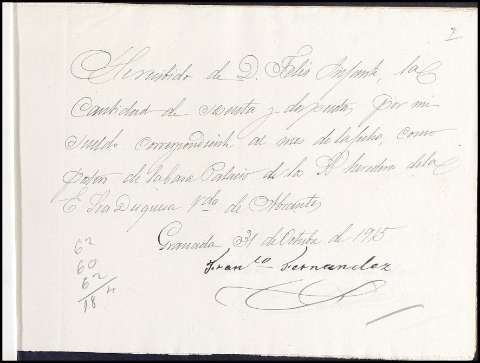 2
He recibido de D. Felis Infante, la
Cantidad de sesenta y dos ptas, por mi
sueldo correspondiente al mes de la fecha, como
de la Casa Palacio de los Sres herederos de la
E. Sra Duquesa Vda de Abrantes
Granada 31 de Octubre de 1915
Franco Fernandez
62
60
62
184